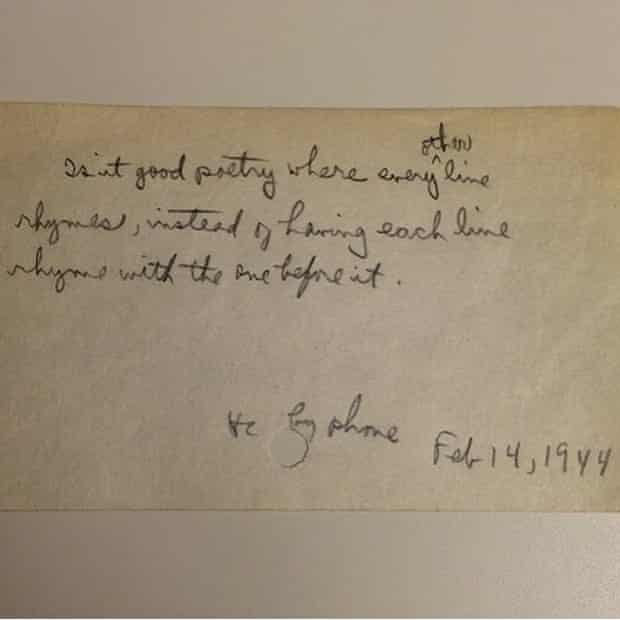 Is it good poetry where every other line
rhymes, instead of having each line
rhyme with the one before it.
by phone
Feb 14, 1944